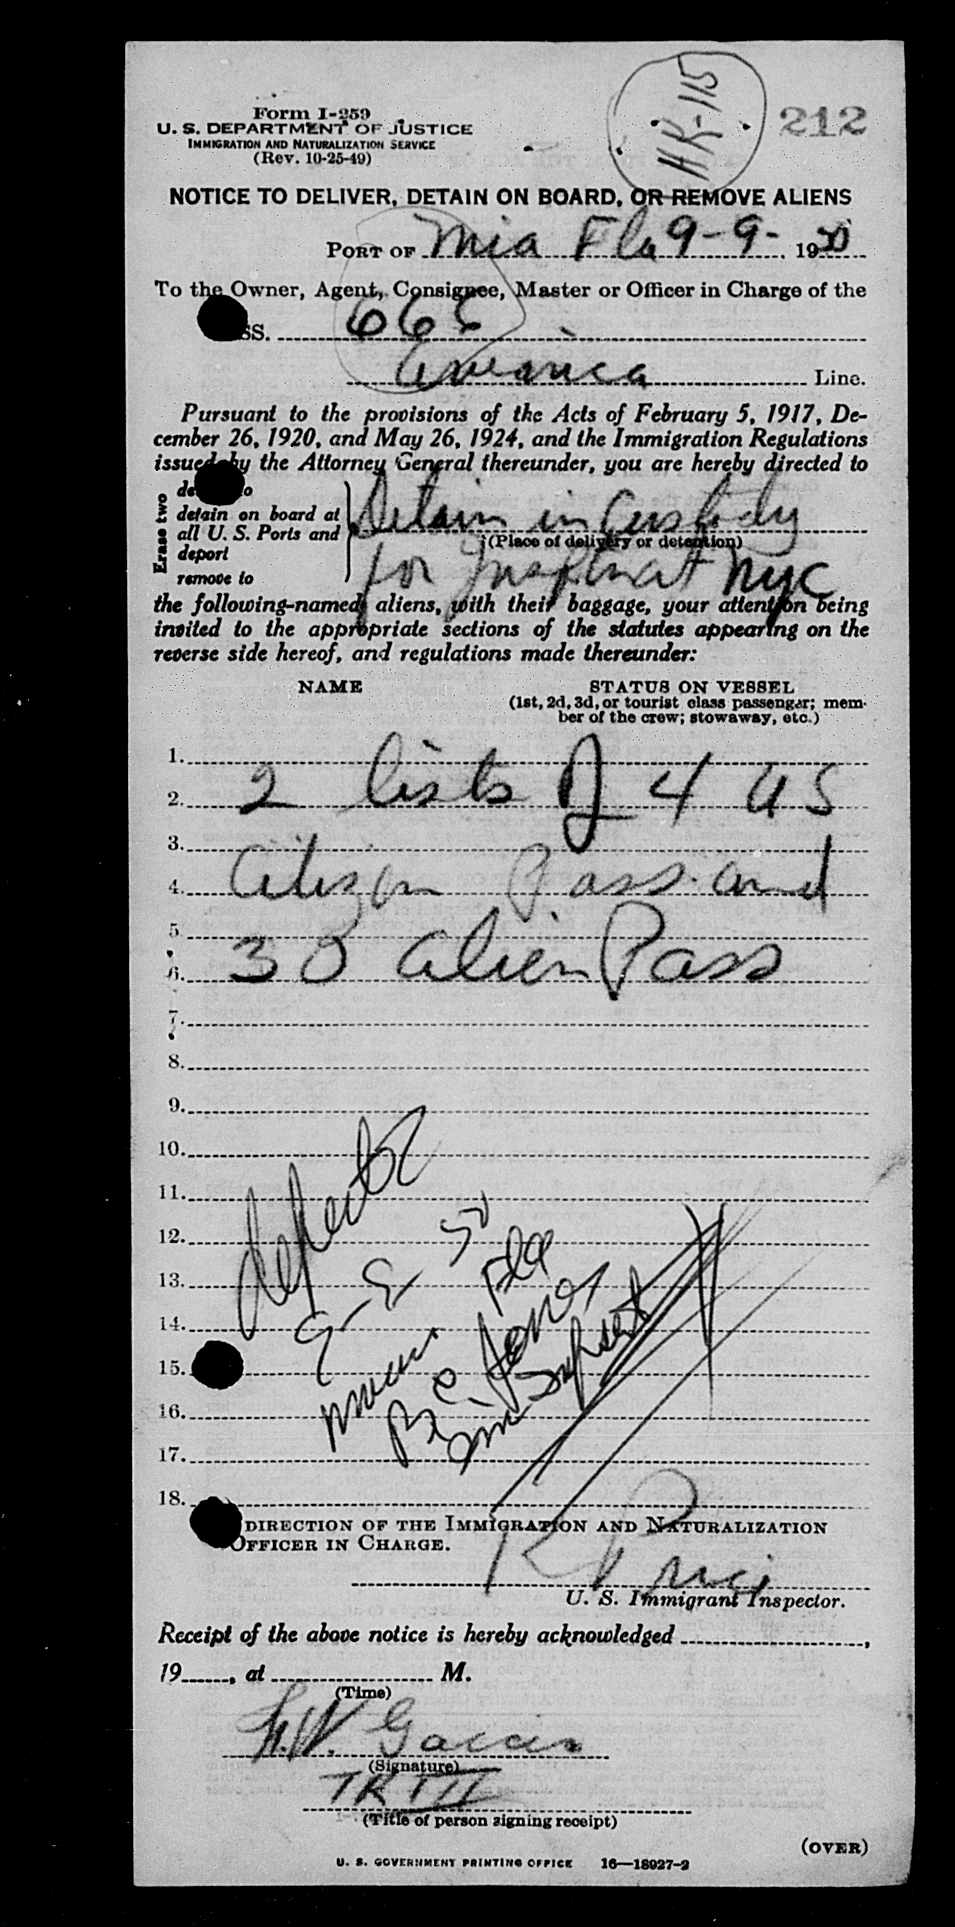 HR-115
212
Form I-259
U. S. DEPARTMENT OF JUSTICE
IMMIGRATION AND NATURALIZATION SERVICE
(Rev. 10-25-49)
NOTICE TO DELIVER, DETAIN ON BOARD, OR REMOVE ALIENS
PORT OF Mia Fla 9-9- 1950
To the Owner, Agent, Consignee, Master or Officer in Charge of the
SS.
America Line.
Pursuant to the provisions of the Acts of February 5, 1917, De-
cember 26, 1920, and May 26, 1924, and the Immigration Regulations
issued by the Attorney General thereunder, you are hereby directed to
Erase two
detain on board at
all U. S. Ports and
deport
remove to
Detain in Custody
(Place of delivery or detention)
for NYC
the following-named aliens, with their baggage, your attention being
invited to the appropriate sections of the statutes appearing on the
reverse side hereof, and regulations made thereunder:
NAME STATUS ON VESSEL
(1st, 2d, 3d, or tourist class passenger; mem-
ber of the crew; stowaway, etc.)
1.
2. 2 lists of 4 US
3.
4. Citizen Pass. and
5.
6. 30 alien Pass
7.
8.
9.
10.
11.
12.
13.
14.
15.
16.
17.
18.
9-9-50
Miami Fla
DIRECTION OF THE IMMIGRATION AND NATURALIZATION
OFFICER IN CHARGE.
U. S. Immigrant Inspector.
Receipt of the above notice is hereby acknowledged ,
19 , at M.
(Time)
(Signature)
(Title of person signing receipt)
(OVER)
U. S. GOVERNMENT PRINTING OFFICE 16—18927-2